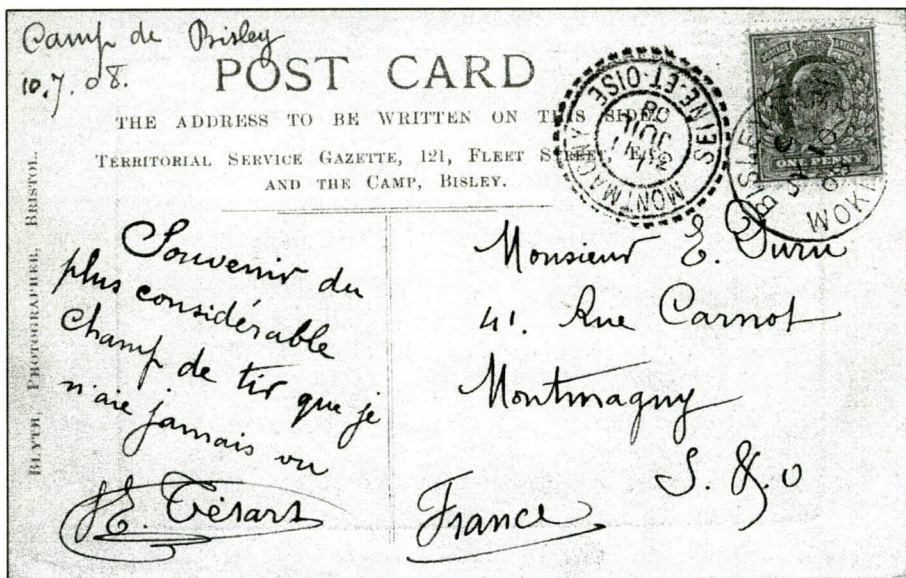 Camp de Bisley
10.7.08.
POST CARD
THE ADDRESS TO BE WRITTEN ON THIS SIDE.
TERRITORIAL SERVICE GAZETTE, 121, FLEET STREET, E.C.,
AND THE CAMP, BISLEY.
BLYTH, PHOTOGRAPHER, BRISTOL.
Souvenir du
plus considérable
champ de tir que je
n'aie jamais vu
E. Tésart
Monsieur E.
41. Rue Carnot
Montmagny
S. & O
France
MONTMAGNY SEINE-ET-OISE
08
ONE PENNY
BISLEY
JY 10
08